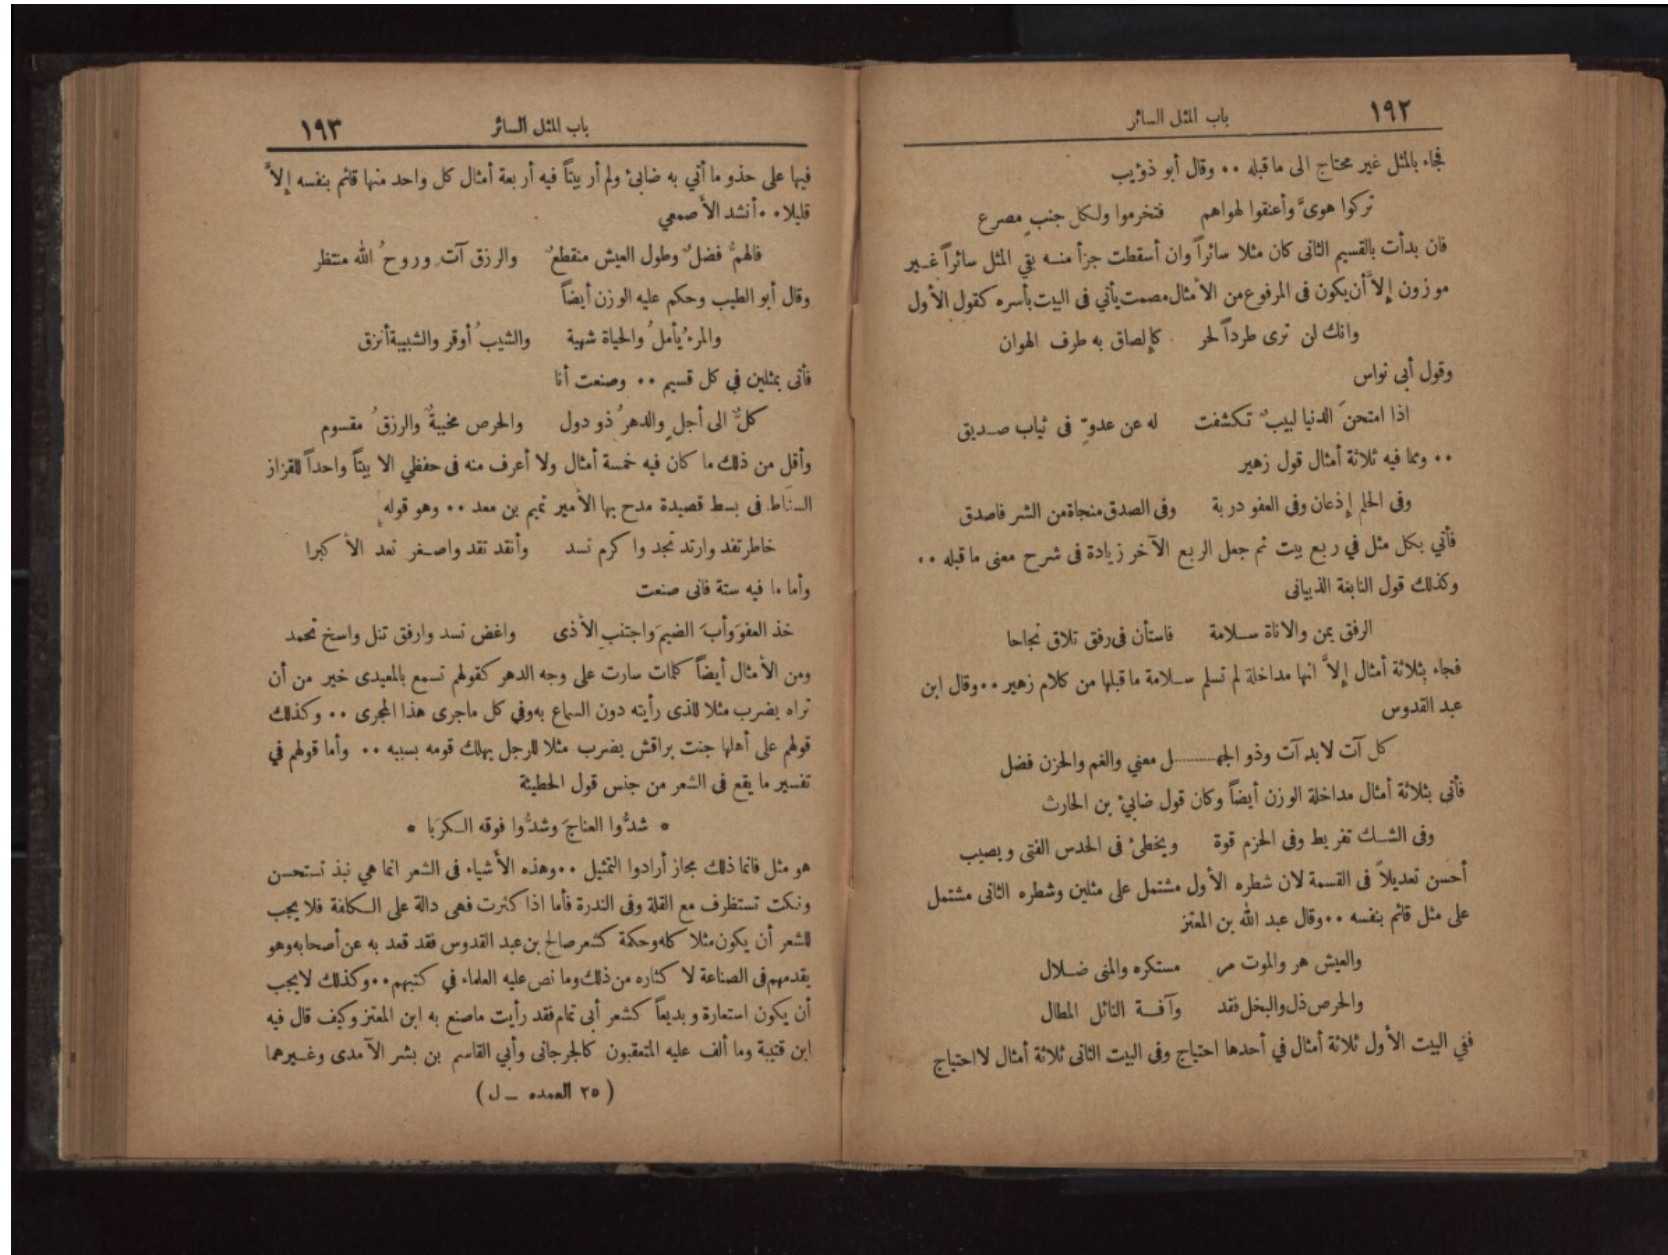 ١٩٢
باب المثل السائر
فجاء بالمثل غير محتاج الى ماقبله ٠٠ وقال أبو ذؤيب
تركوا هوىَّ وأعنقوا لهواهم فتخرموا ولكل جنبٍ مصرع
فان بدأت بالقسيم الثانى كان مثلا سائراً وان أسقطت جزأ منه بقي المثل سائراً غير
موزون إلاَّ أن يكون فى المرفوع من الأمثال مصمت يأتي فى البيت بأسره كقول الأول
وانك لن ترى طرداً لحر كإلصاق به طرف الهوان
وقول أبى نواس
اذا امتحنَ الدنيا لبيبٌ تكشفت له عن عدوّ فى ثياب صديق
٠٠ ومما فيه ثلاثة أمثال قول زهير
وفى الحلم إذعان وفي العفو دربة وفى الصدق منجاة من الشر فاصدق
فأتي بكل مثل في ربع بيت ثم جعل الربع الآخر زيادة فى شرح معنى ماقبله ٠٠
وكذلك قول النابغة الذبيانى
الرفق يمن والاناة سلامة فاستأن فى رفق تلاق نجاحا
فجاء بثلاثة أمثال إلاَّ انها مداخلة لم تسلم سلامة ماقبلها من كلام زهير ٠٠ وقال ابن
عبد القدوس
كل آت لابد آت وذو الجهـــل معني والغم والحزن فضل
فأتى بثلاثة أمثال مداخلة الوزن أيضاً وكان قول ضابئ بن الحارث
وفى الشك تفريط وفى الحزم قوة ويخطئ فى الحدس الفتى ويصيب
أحسَن تعديلاً فى القسمة لان شطره الأول مشتمل على مثلين وشطره الثانى مشتمل
على مثل قائم بنفسه ٠٠ وقال عبد الله بن المعتز
والعيش هر والموت مر مستكره والمنى ضلال
والحرص ذل والبخل فقد وآفة النائل المطال
ففي البيت الأول ثلاثة أمثال في أحدها احتياج وفى البيت الثانى ثلاثة أمثال لااحتياج
باب المثل السائر
١٩٣
فيها على حذو ما أتي به ضابئ ولم أر بيتاً فيه أربعة أمثال كل واحد منها قائم بنفسه إلاَّ
قليلا ٠٠ أنشد الأصمعي
فالهمُّ فضلٌ وطول العيش منقطعٌ والرزق آتٍ وروحُ الله منتظر
وقال أبو الطيب وحكم عليه الوزن أيضاً
والمرءُ يأملُ والحياة شهية والشيبُ أوقر والشبيبة أنزق
فأتى بمثلين في كل قسيم ٠٠ وصنعت أنا
كلٌّ الى أجلٍ والدهرُ ذو دول والحرص مخيبةٌ والرزقُ مقسوم
وأقل من ذلك ما كان فيه خمسة أمثال ولا أعرف منه فى حفظي الا بيتاً واحداً للقزاز
السناط فى بسط قصيدة مدح بها الأمير تميم بن معد ٠٠ وهو قوله
خاطر تفد وارتد تجد واكرم تسد وأنقد تقد واصغر تعد الأكبرا
وأما ما فيه ستة فانى صنعت
خذ العفوَ وأبَ الضيمَ واجتنبِ الأذى واغض تسد وارفق تنل واسخ تحمد
ومن الأمثال أيضاً كلمات سارت على وجه الدهر كقولهم تسمع بالمعيدى خير من أن
تراه يضرب مثلا للذى رأيته دون السماع به وفي كل ماجرى هذا المجرى ٠٠ وكذلك
قولهم على أهلها جنت براقش يضرب مثلا للرجل يهلك قومه بسببه ٠٠ وأما قولهم في
تفسير ما يقع فى الشعر من جنس قول الحطيئة
* شدُّوا العناجَ وشدُّوا فوقه الكرَبا *
هو مثل فانما ذلك مجاز أرادوا التمثيل ٠٠ وهذه الأشياء فى الشعر انما هي نبذ تستحسن
ونكت تستظرف مع القلة وفى الندرة فأما اذا كثرت فهى دالة على الكلفة فلا يجب
للشعر أن يكون مثلا كله وحكمة كشعر صالح بن عبد القدوس فقد قعد به عن أصحابه وهو
يقدمهم فى الصناعة لا كثاره من ذلك وما نص عليه العلماء في كتبهم ٠٠ وكذلك لايجب
أن يكون استعارة وبديعاً كشعر أبى تمام فقد رأيت ماصنع به ابن المعتز وكيف قال فيه
ابن قتيبة وما ألف عليه المتعقبون كالجرجانى وأبي القاسم بن بشر الآمدى وغيرهما
( ٢٥ العمده ــ ل )